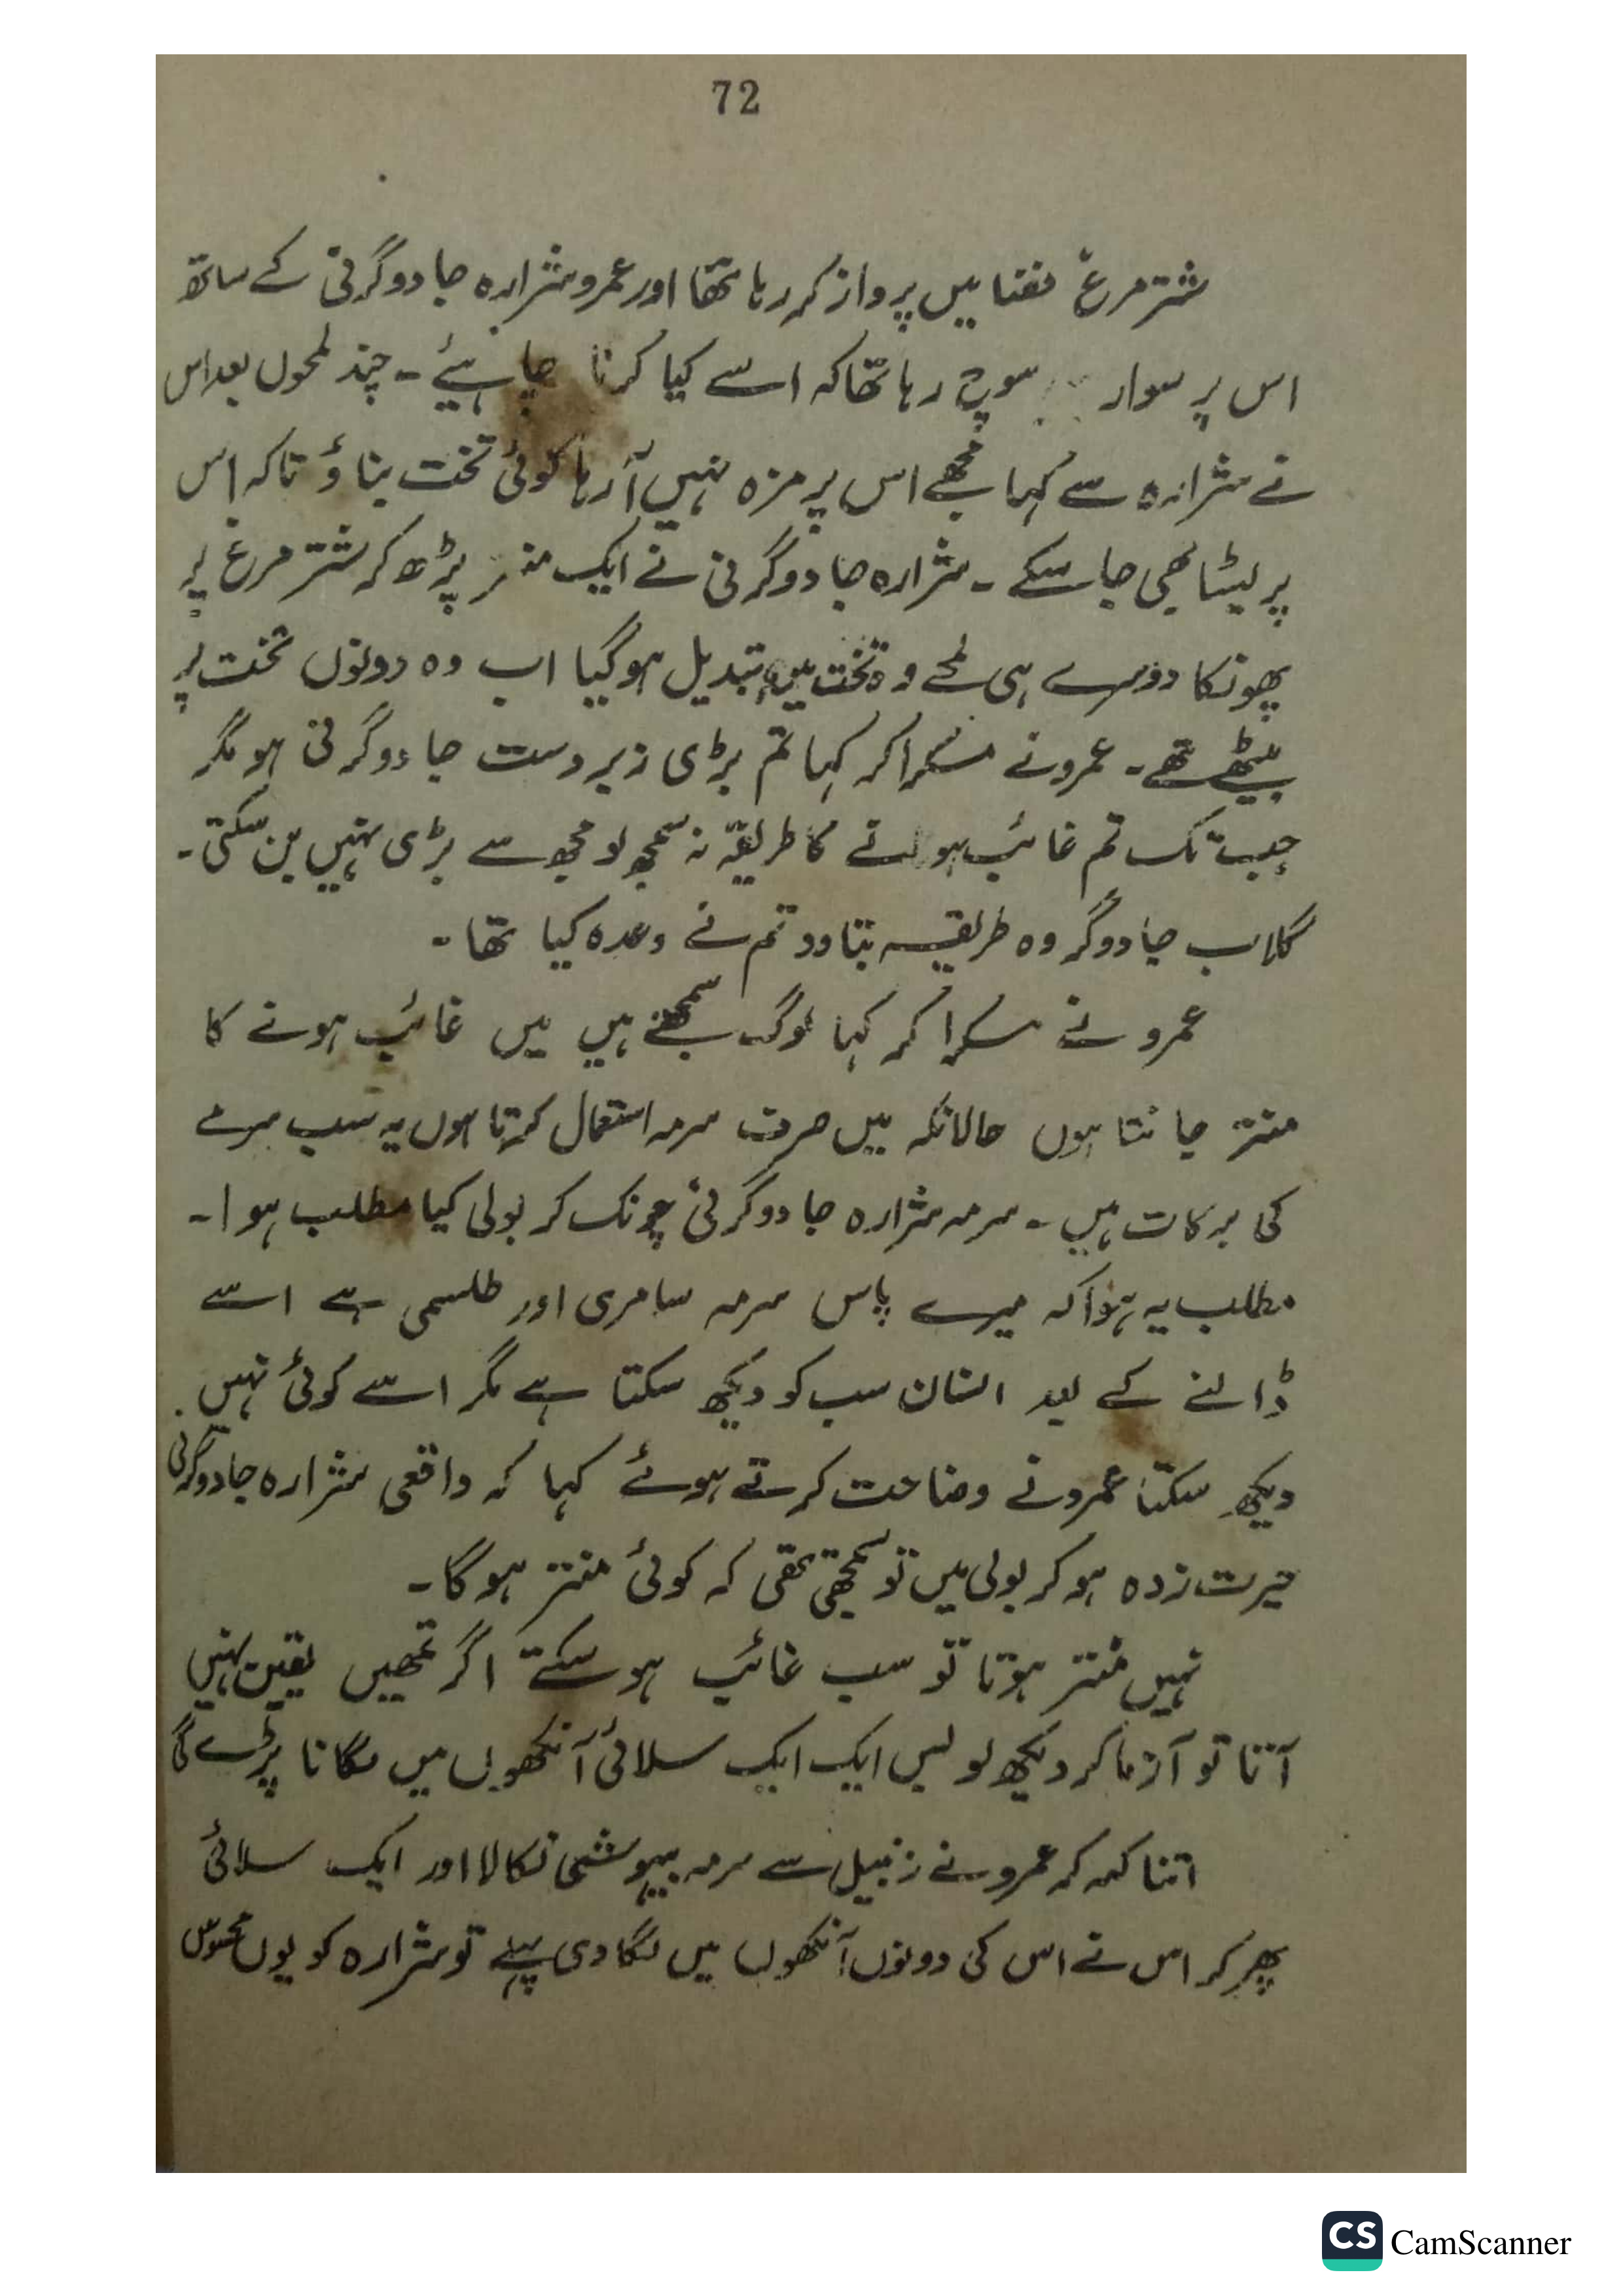 72
شتر مرغ فضا میں پرواز کر رہا تھا اور عمرو شرارہ جادوگرنی کے ساتھ
اس پر سوار سوچ رہا تھا کہ اسے کیا کرنا چاہیئے ۔ چند لمحوں بعد اس
نے شرارہ سے کہا مجھے اس پر مزہ نہیں آ رہا کوئی تخت بناؤ تاکہ اس
پر لیٹا بھی جا سکے ۔ شرارہ جادوگرنی نے ایک منتر پڑھ کر شتر مرغ پر
پھونکا دوسرے ہی لمحے وہ تخت میں تبدیل ہو گیا اب وہ دونوں تخت پر
بیٹھے تھے ۔ عمرو نے مسکرا کر کہا تم بڑی زبردست جادوگرنی ہو مگر
جب تک تم غائب ہونے کا طریقہ نہ سمجھ لو مجھ سے بڑی نہیں بن سکتی ۔
گلاب جادوگر وہ طریقہ بتا دو تم نے وعدہ کیا تھا ۔
عمرو نے مسکرا کر کہا لوگ سمجھتے ہیں میں غائب ہونے کا
منتر جانتا ہوں حالانکہ میں صرف سرمہ استعمال کرتا ہوں یہ سب سرمے
کی برکات ہیں ۔ سرمہ شرارہ جادوگرنی چونک کر بولی کیا مطلب ہوا ۔
مطلب یہ ہوا کہ میرے پاس سرمہ سامری اور طلسمی ہے اسے
ڈالنے کے بعد انسان سب کو دیکھ سکتا ہے مگر اسے کوئی نہیں
دیکھ سکتا عمرو نے وضاحت کرتے ہوئے کہا کہ واقعی شرارہ جادوگرنی
حیرت زدہ ہو کر بولی میں تو سمجھتی تھی کہ کوئی منتر ہو گا ۔
نہیں منتر ہوتا تو سب غائب ہو سکتے اگر تمھیں یقین نہیں
آتا تو آزما کر دیکھ لو بس ایک ایک سلائی آنکھوں میں لگانا پڑے گی
اتنا کہہ کر عمرو نے زنبیل سے سرمہ بیہوشی نکالا اور ایک سلائی
پھر کر اس نے اس کی دونوں آنکھوں میں لگا دی پہلے تو شرارہ کو یوں محسوس
CS CamScanner